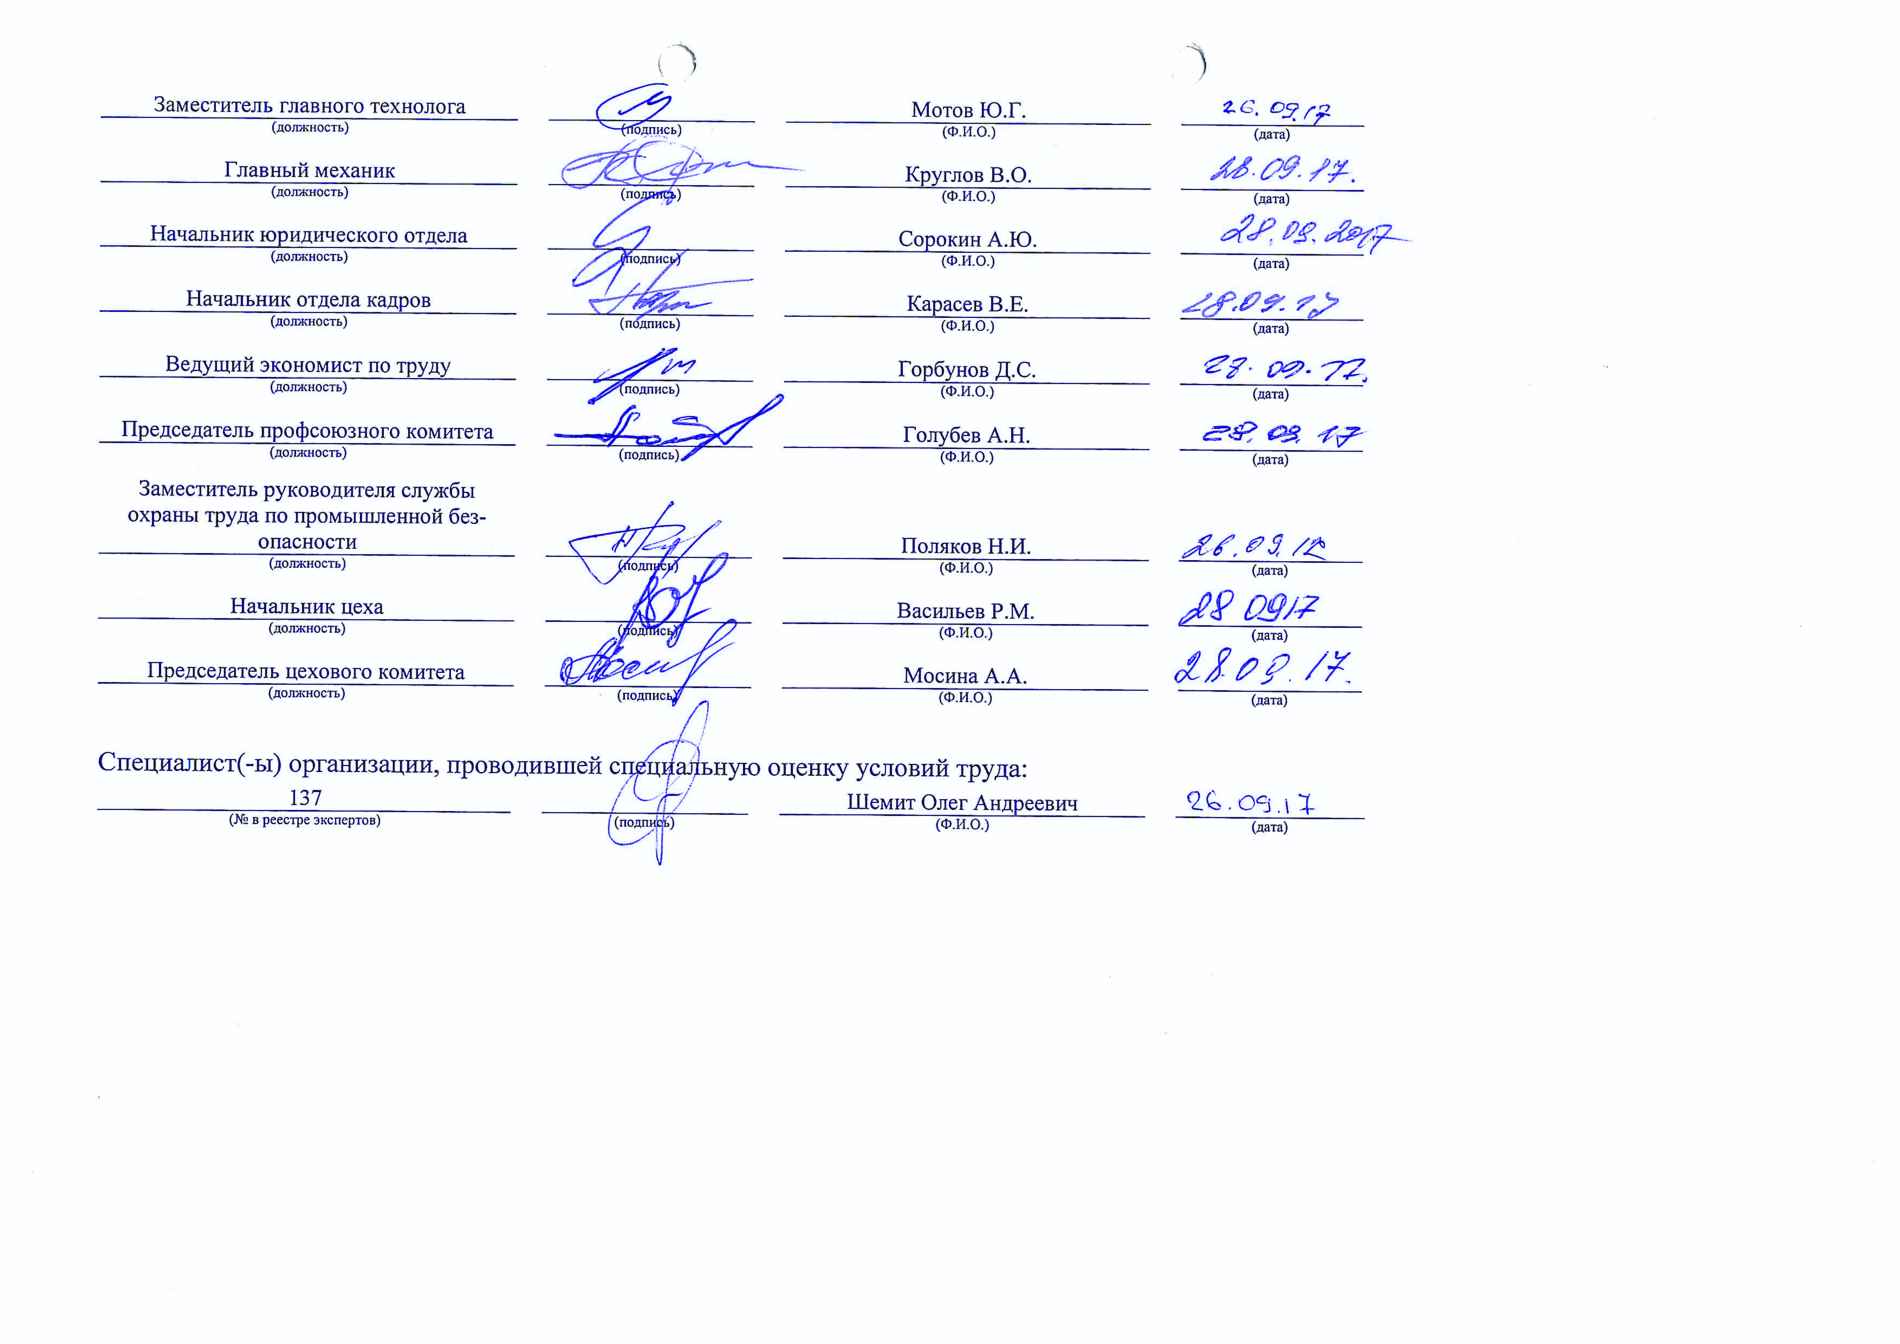 Заместитель главного технолога Мотов Ю.Г. 26.09.17
(должность) (подпись) (Ф.И.О.) (дата)
Главный механик Круглов В.О. 28.09.17.
(должность) (подпись) (Ф.И.О.) (дата)
Начальник юридического отдела Сорокин А.Ю. 28.09.2017
(должность) (подпись) (Ф.И.О.) (дата)
Начальник отдела кадров Карасев В.Е. 28.09.17
(должность) (подпись) (Ф.И.О.) (дата)
Ведущий экономист по труду Горбунов Д.С. 28.09.17.
(должность) (подпись) (Ф.И.О.) (дата)
Председатель профсоюзного комитета Голубев А.Н. 28.09.17
(должность) (подпись) (Ф.И.О.) (дата)
Заместитель руководителя службы
охраны труда по промышленной без-
опасности Поляков Н.И. 26.09.17
(должность) (подпись) (Ф.И.О.) (дата)
Начальник цеха Васильев Р.М. 28 0917
(должность) (подпись) (Ф.И.О.) (дата)
Председатель цехового комитета Мосина А.А. 28.09.17.
(должность) (подпись) (Ф.И.О.) (дата)
Специалист(-ы) организации, проводившей специальную оценку условий труда:
137 Шемит Олег Андреевич 26.09.17
(№ в реестре экспертов) (подпись) (Ф.И.О.) (дата)